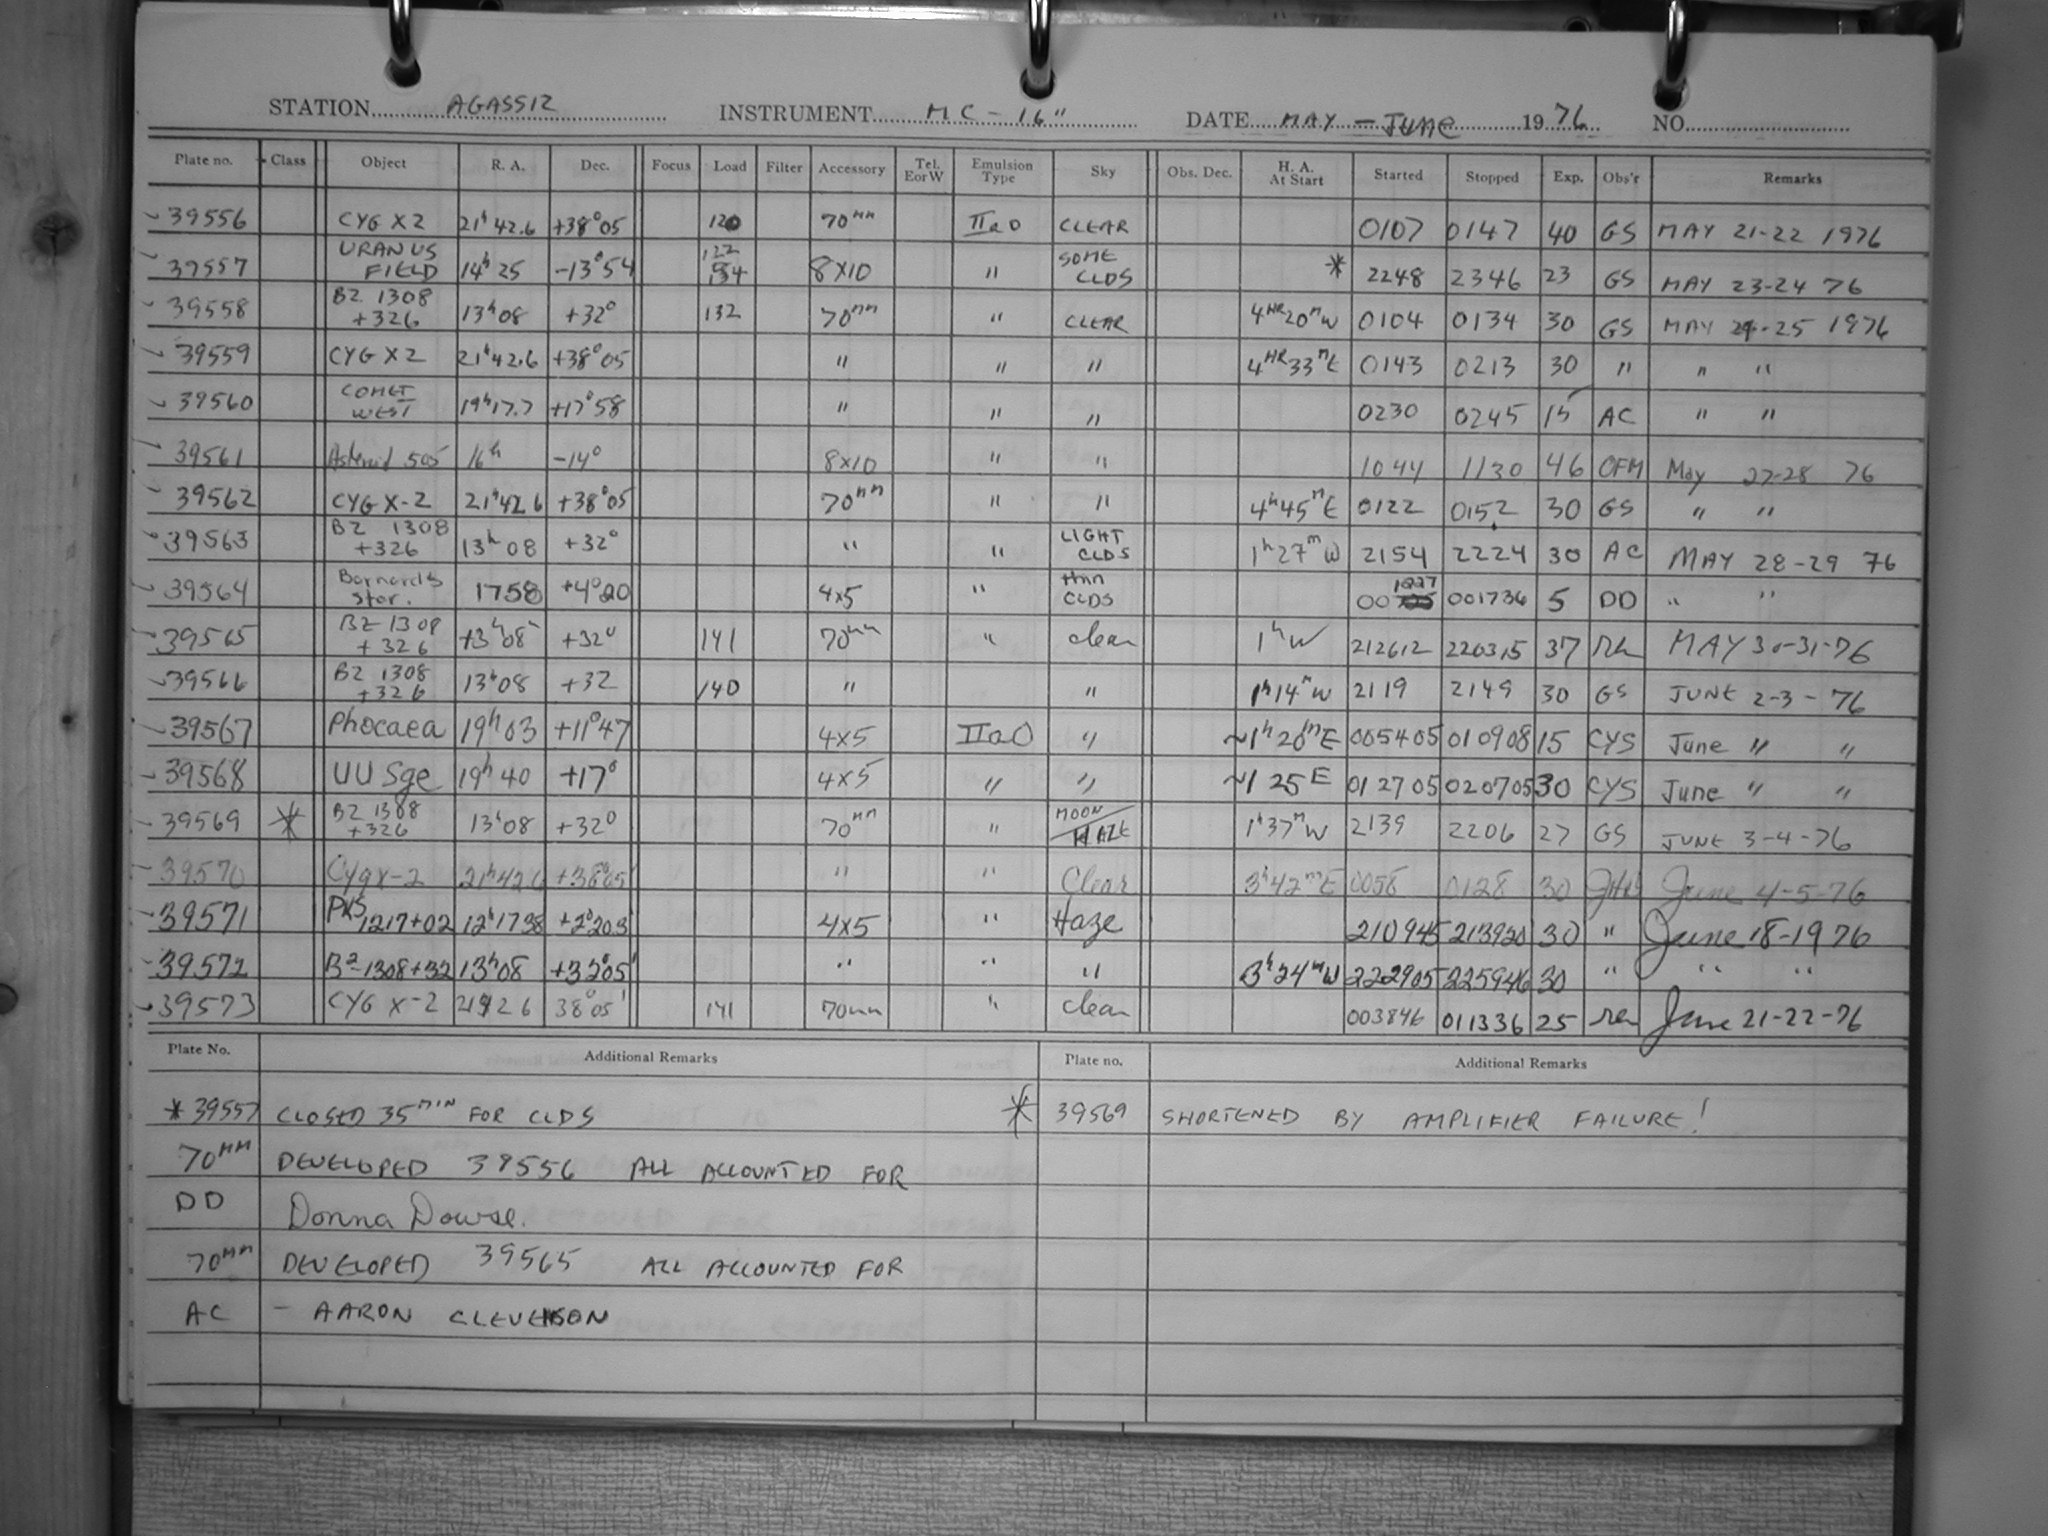 STATION AGASSIZ INSTRUMENT MC - 16" DATE MAY - JUNE 19 76 NO.
Plate no. Class Object R. A. Dec. Focus Load Filter Accessory Tel. E or W Emulsion Type Sky Obs. Dec. H. A. At Start Started Stopped Exp. Obs'r Remarks
39556 CYG X2 21h 42.6 +38°05 120 70mm IIaO CLEAR 0107 0147 40 GS MAY 21-22 1976
39557 URANUS FIELD 14h 25 -13°54 122 134 8X10 " SOME CLDS * 2248 2346 23 GS MAY 23-24 76
39558 B2 1308 +326 13h 08 +32° 132 70mm " CLEAR 4HR 20m W 0104 0134 30 GS MAY 24-25 1976
39559 CYG X2 21h 42.6 +38°05 " " " 4HR 33m E 0143 0213 30 " " "
39560 COMET WEST 19h 17.7 +17°58 " " " 0230 0245 15 AC " "
39561 Asteroid 505 16h -14° 8X10 " " 1044 1130 46 OFM May 27-28 76
39562 CYG X-2 21h 42.6 +38°05 70mm " " 4h 45m E 0122 0152 30 GS " "
39563 B2 1308 +326 13h 08 +32° " " LIGHT CLDS 1h 27m W 2154 2224 30 AC MAY 28-29 76
39564 Barnard's Star. 1758 +4°20 4x5 " thin CLDS 00 1227 001736 5 DD " "
39565 B2 1308 +326 13h 08 +32° 141 70mm " clear 1h W 212612 220315 37 MAY 30-31-76
39566 B2 1308 +326 13h 08 +32 140 " " 1h 14m W 2119 2149 30 GS JUNE 2-3-76
39567 Phocaea 19h 03 +11°47 4x5 IIaO " ~1h 20m E 005405 010908 15 CYS June " "
39568 UU Sge 19h 40 +17° 4x5 " " ~1 25 E 012705 020705 30 CYS June " "
39569 * B2 1308 +326 13h 08 +32° 70mm " MOON/HAZE 1h 37m W 2139 2206 27 GS JUNE 3-4-76
39570 Cyg x-2 21h 42.6 +38°05' " " Clear 3h 42m E 0058 0128 30 June 4-5-76
39571 PKS 1217+02 12h 17 38 +2°20.3 4x5 " Haze 210945 213920 30 " June 18-1976
39572 B2-1308+32 13h 08 +32°05' " " " 3h 24m W 222905 225946 30 " " "
39573 CYG X-2 2142 6 38°05' 141 70mm " clear 003846 011336 25 June 21-22-76
Plate No. Additional Remarks Plate no. Additional Remarks
* 39557 CLOSED 35MIN FOR CLDS * 39569 SHORTENED BY AMPLIFIER FAILURE!
70MM DEVELOPED 39556 ALL ACCOUNTED FOR
DD Donna Dowse.
70MM DEVELOPED 39565 ALL ACCOUNTED FOR
AC - AARON CLEVENSON